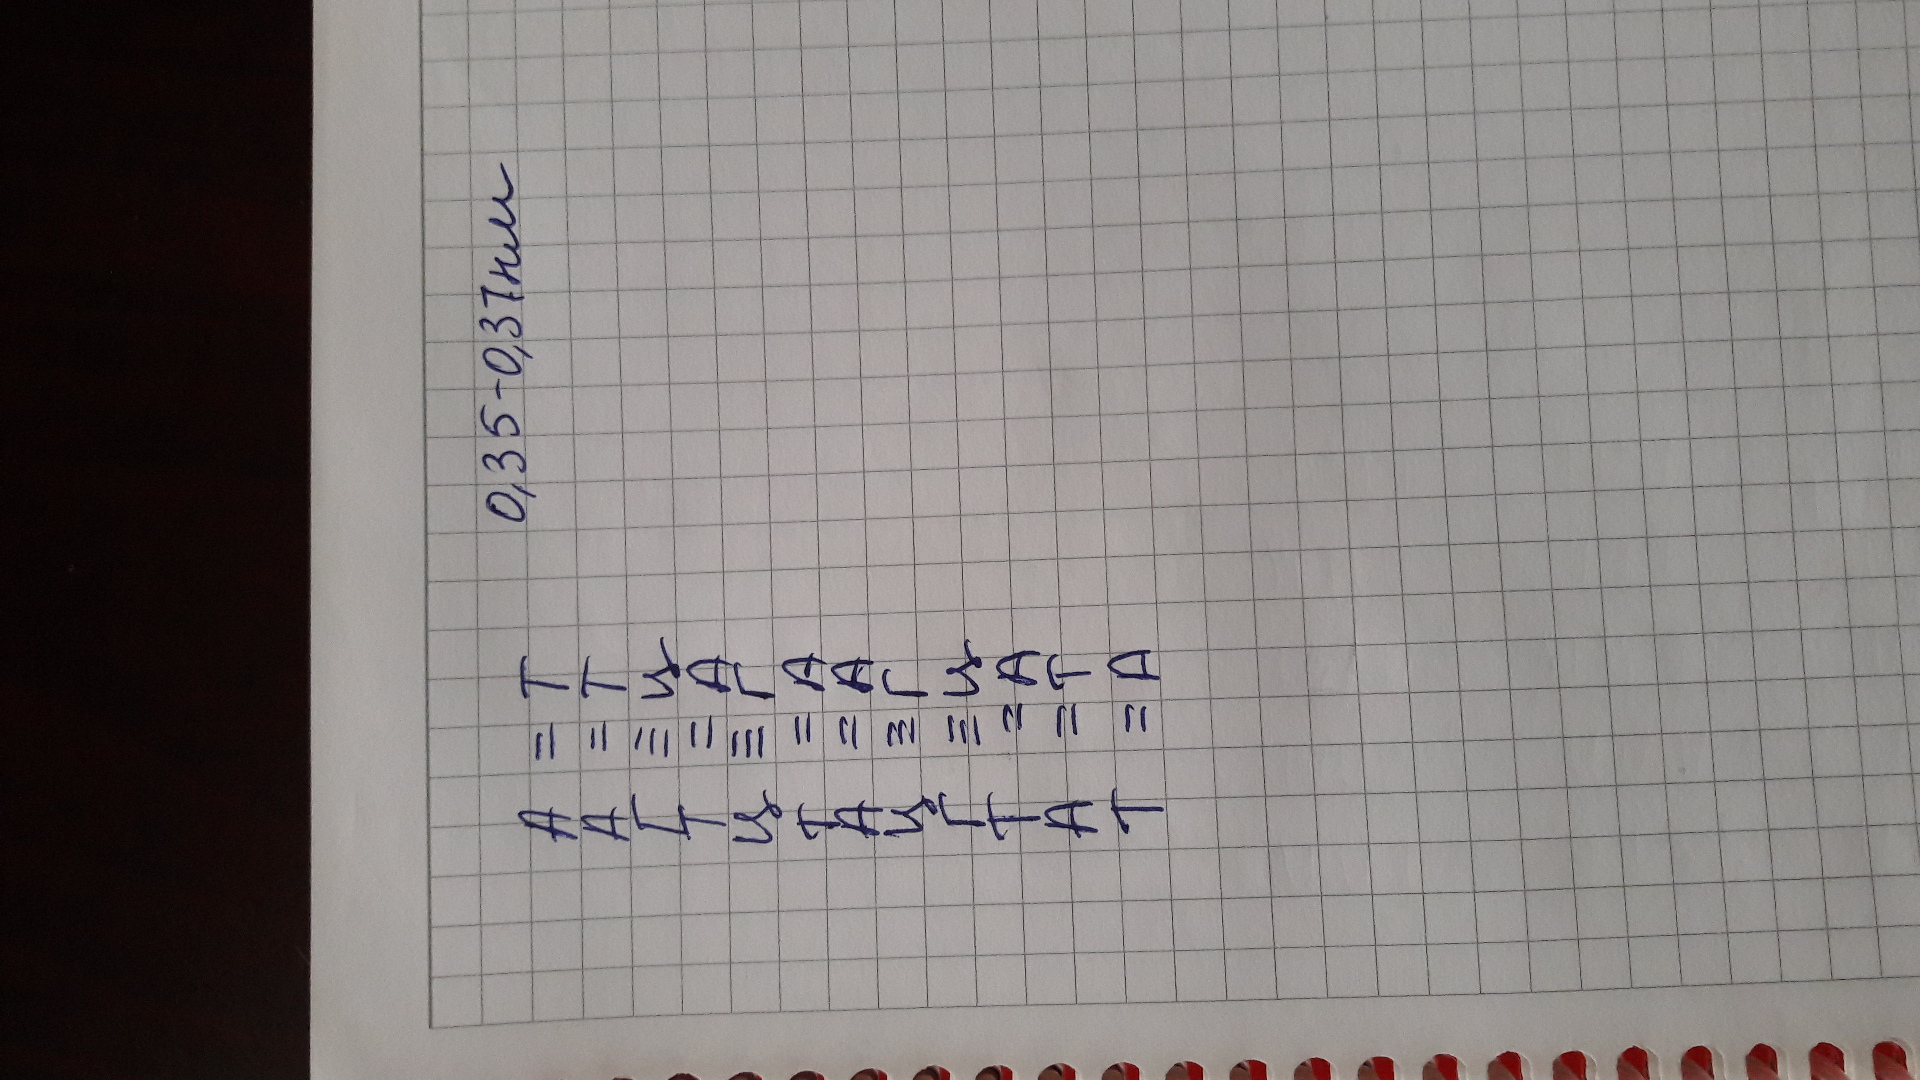 0,35-0,37нм
А = Т
А = Т
Г ≡ Ц
Т = А
Ц ≡ Г
Т = А
А = А
Ц ≡ Г
Г ≡ Ц
Т = А
А = Т
Т = А